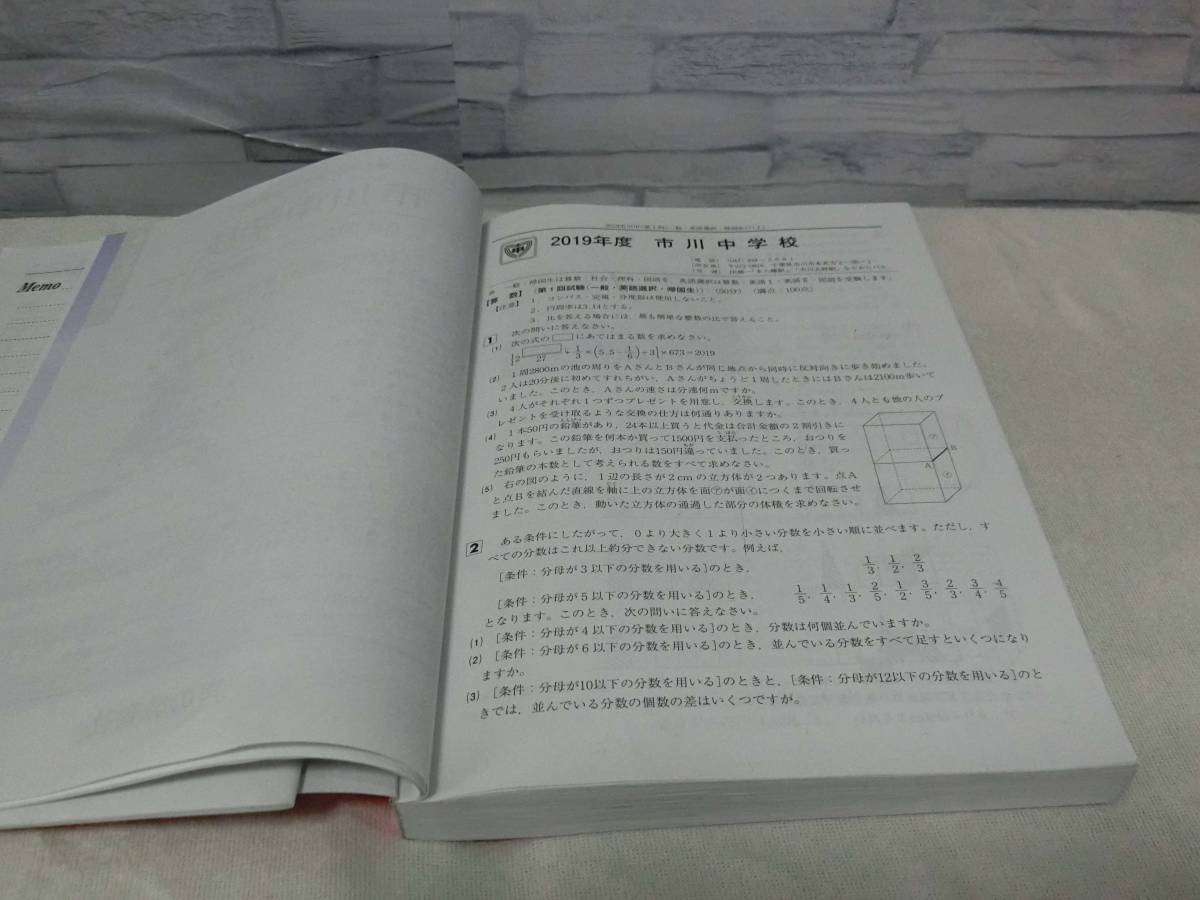 Memo
2019年度 市川中学校
※ 一般・帰国生は算数・社会・理科・国語を、英語選択は算数・英語Ⅰ・英語Ⅱ・国語を受験します。
【算 数】〈第1回試験(一般・英語選択・帰国生)〉(50分)〈満点:100点〉
[注意] 1. コンパス・定規・分度器は使用しないこと。
2. 円周率は3.14とする。
3. 比を答える場合には、最も簡単な整数の比で答えること。
1 次の問いに答えなさい。
(1) 次の式の□にあてはまる数を求めなさい。
{2□/27+1/3×(5.5-1/6)÷3}×673=2019
(2) 1周2800mの池の周りをAさんとBさんが同じ地点から同時に反対向きに歩き始めました。
2人は20分後に初めてすれちがい、Aさんがちょうど1周したときにはBさんは2100m歩いて
いました。このとき、Aさんの速さは分速何mですか。
(3) 4人がそれぞれ1つずつプレゼントを用意し、交換します。このとき、4人とも他の人のプ
レゼントを受け取るような交換の仕方は何通りありますか。
(4) 1本50円の鉛筆があり、24本以上買うと代金は合計金額の2割引きに
なります。この鉛筆を何本か買って1500円を支払ったところ、おつりを
250円もらいましたが、おつりは150円違っていました。このとき、買っ
た鉛筆の本数として考えられる数をすべて求めなさい。
(5) 右の図のように、1辺の長さが2cmの立方体が2つあります。点A
と点Bを結んだ直線を軸に上の立方体を面㋐が面㋑につくまで回転させ
ました。このとき、動いた立方体の通過した部分の体積を求めなさい。
㋐
A B
㋑
2 ある条件にしたがって、0より大きく1より小さい分数を小さい順に並べます。ただし、す
べての分数はこれ以上約分できない分数です。例えば、
[条件:分母が3以下の分数を用いる]のとき、 1/3, 1/2, 2/3
[条件:分母が5以下の分数を用いる]のとき、 1/5, 1/4, 1/3, 2/5, 1/2, 3/5, 2/3, 3/4, 4/5
となります。このとき、次の問いに答えなさい。
(1) [条件:分母が4以下の分数を用いる]のとき、分数は何個並んでいますか。
(2) [条件:分母が6以下の分数を用いる]のとき、並んでいる分数をすべて足すといくつになり
ますか。
(3) [条件:分母が10以下の分数を用いる]のときと、[条件:分母が12以下の分数を用いる]のと
きでは、並んでいる分数の個数の差はいくつですが。